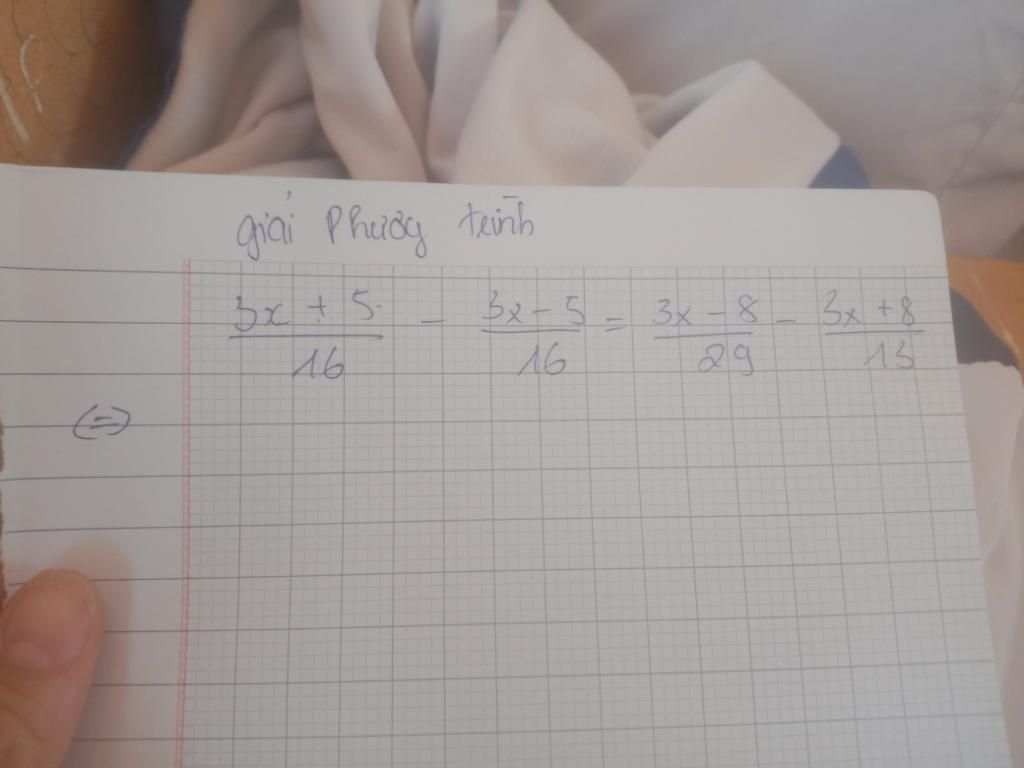 giải Phương trình
3x + 5 / 16 - 3x - 5 / 16 = 3x - 8 / 29 - 3x + 8 / 13
(=)